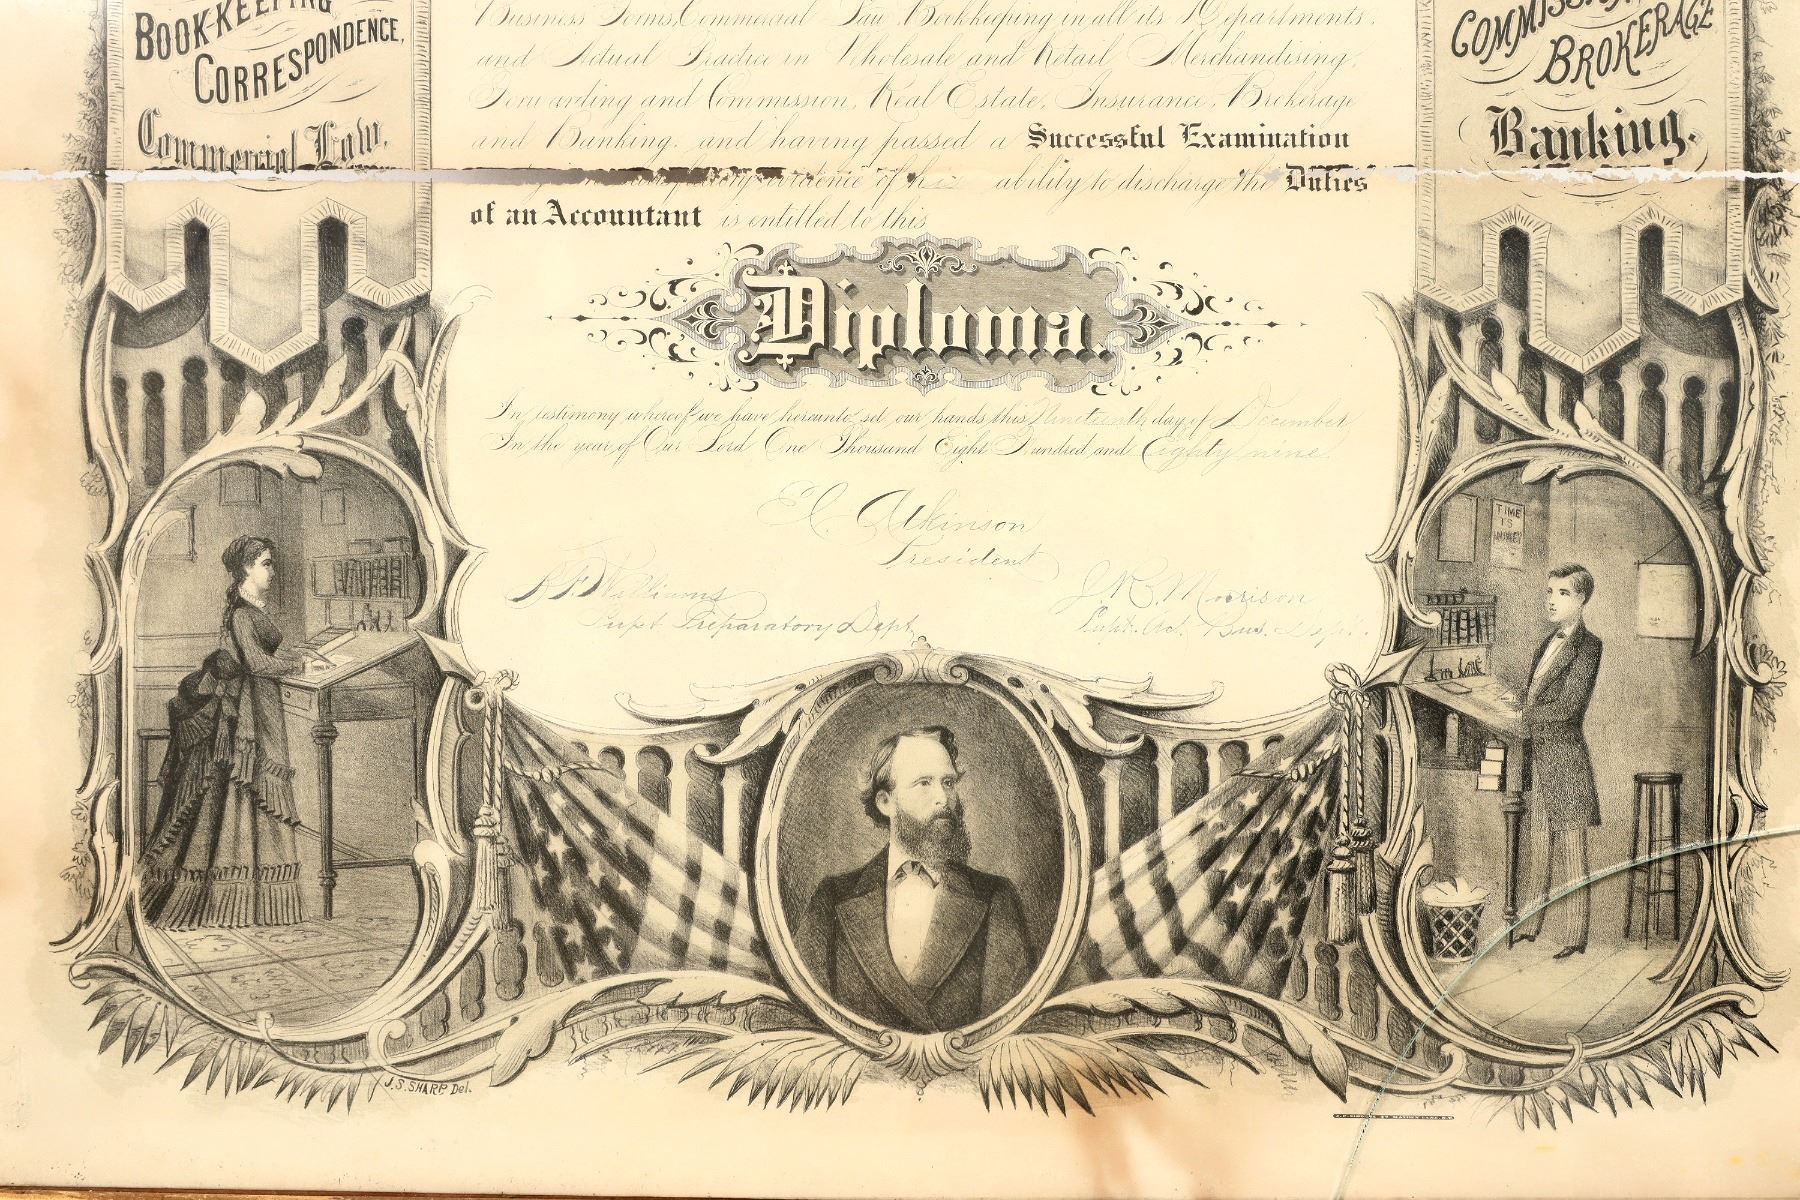 BOOK-KEEPING
CORRESPONDENCE,
Commercial Law.
Business Forms, Commercial Law, Bookkeeping in all its Departments,
and Actual Practice in Wholesale and Retail Merchandising,
Forwarding and Commission, Real Estate, Insurance, Brokerage
and Banking, and having passed a Successful Examination
evidence of his ability to discharge the Duties
of an Accountant is entitled to this
Diploma.
In testimony whereof we have hereunto set our hands this Nineteenth day of December
In the year of Our Lord One Thousand Eight Hundred and Eighty nine.
Atkinson
President
Williams
Supt Preparatory Dept.
J.R. Morrison
Supt. Act. Bus. Dept.
BROKERAGE
Banking.
TIME
IS
MONEY
J.S. SHARP Del.